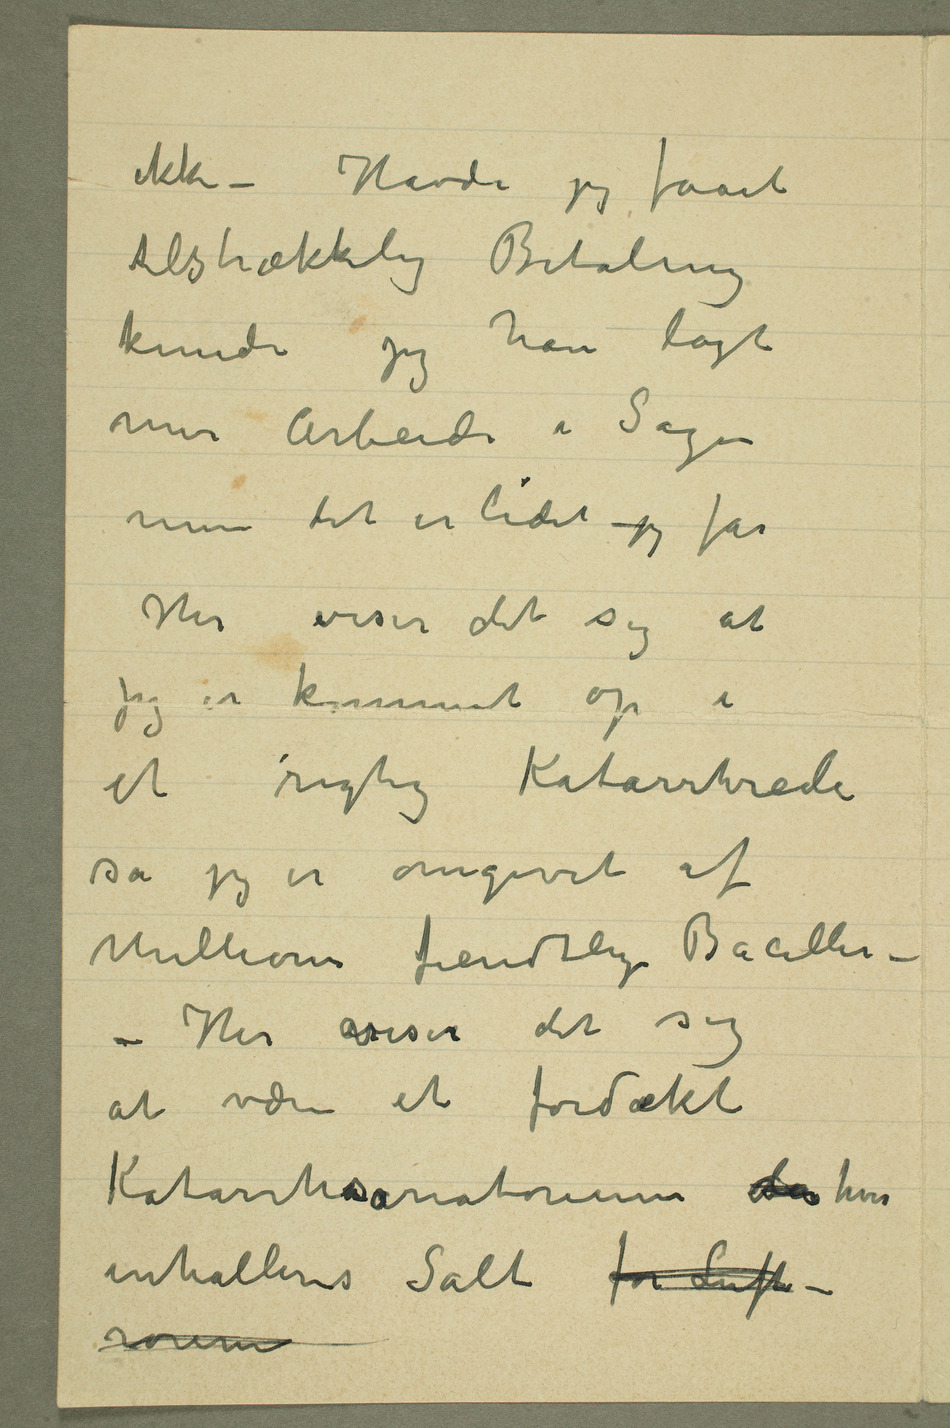 ikke – Havde jeg faaet
tilstrækkelig Betaling
kunde jeg have lagt
mer Arbeide i Sagen
men det er lidet jeg får
Her viser det sig at
jeg er kommet op i
et rigtig Katarrhrede
så jeg er omgivet af
Millioner fiendtlige Baciller –
– Her viser det sig
at være et fordækt
Katarrhsanatorium der hvor
inhalleres Salt for Luft–
rørene